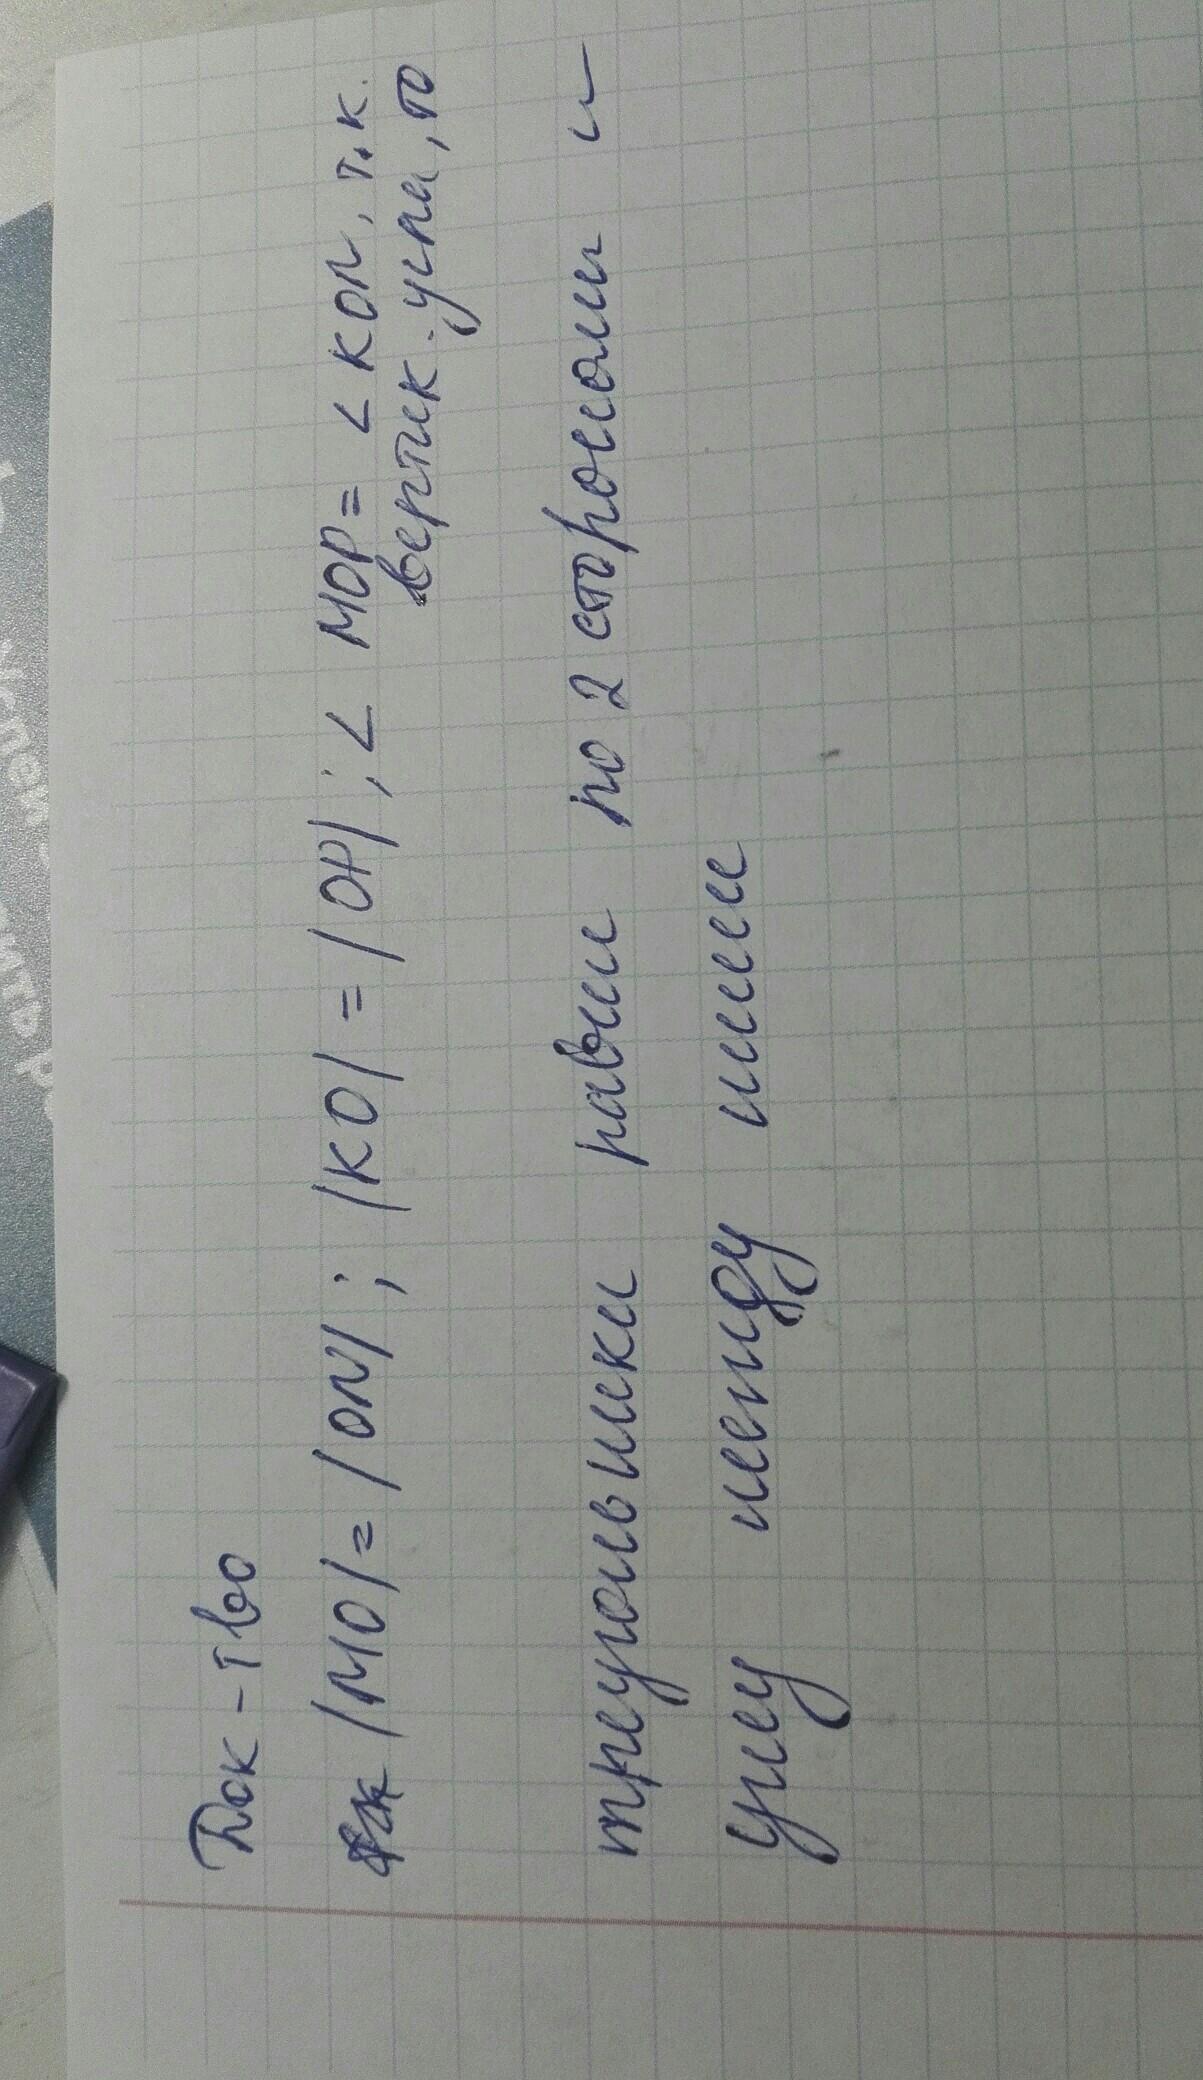 Док-тво
тк |MO| = |ON|; |KO| = |OP|; < MOP = < KON, т.к.
вертик. углы, то
треугольники равны по 2 сторонам и
углу между ними